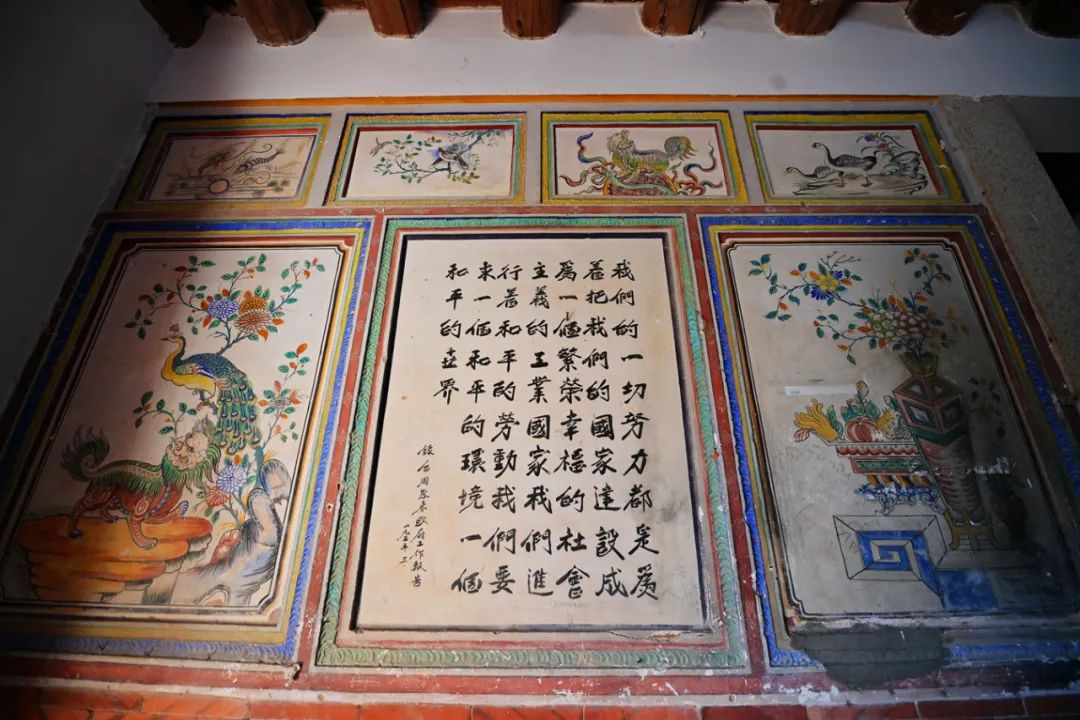 我們的一切努力都是爲
着把我們的國家建設成
爲一個繁榮幸福的社會
主義的工業國家我們進
行着和平的勞動我們要
求一個和平的環境一個
和平的世界
周恩來政府工作報告